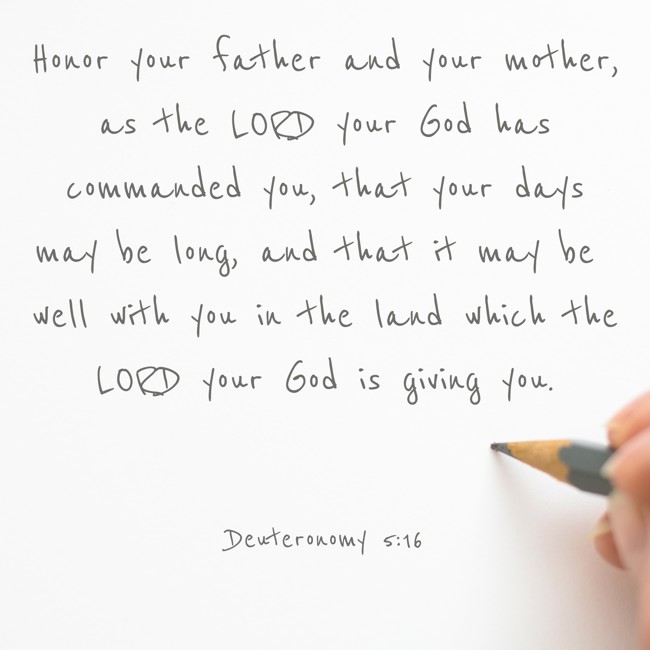 Honor your father and your mother,
as the LORD your God has
commanded you, that your days
may be long, and that it may be
well with you in the land which the
LORD your God is giving you.
Deuteronomy 5:16